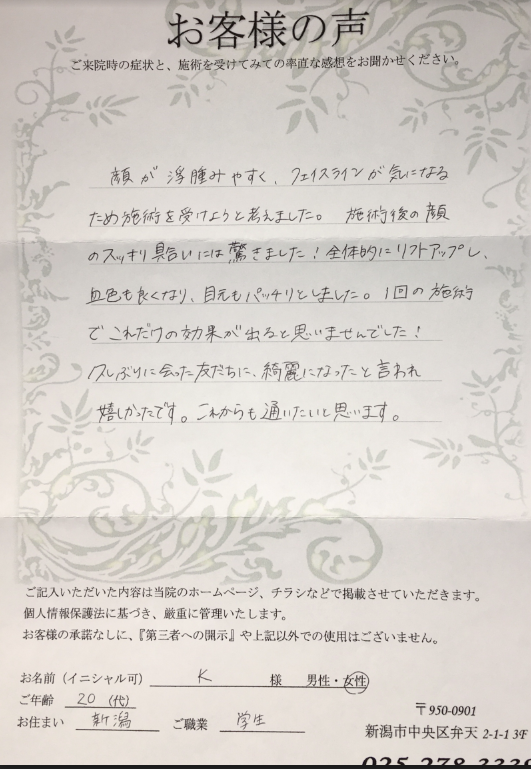 お客様の声
ご来院時の症状と、施術を受けてみての率直な感想をお聞かせください。
顔が浮腫みやすく、フェイスラインが気になる
ため施術を受けようと考えました。 施術後の顔
のスッキリ具合いには驚きました！全体的にリフトアップし、
血色も良くなり、目元もパッチリとしました。1回の施術
でこれだけの効果が出ると思いませんでした！
久しぶりに会った友だちに、綺麗になったと言われ
嬉しかったです。これからも通いたいと思います。
ご記入いただいた内容は当院のホームページ、チラシなどで掲載させていただきます。
個人情報保護法に基づき、厳重に管理いたします。
お客様の承諾なしに、『第三者への開示』や上記以外での使用はございません。
お名前（イニシャル可） K 様 男性・女性
ご年齢 20（代）
お住まい 新潟 ご職業 学生
〒950-0901
新潟市中央区弁天 2-1-1 3F